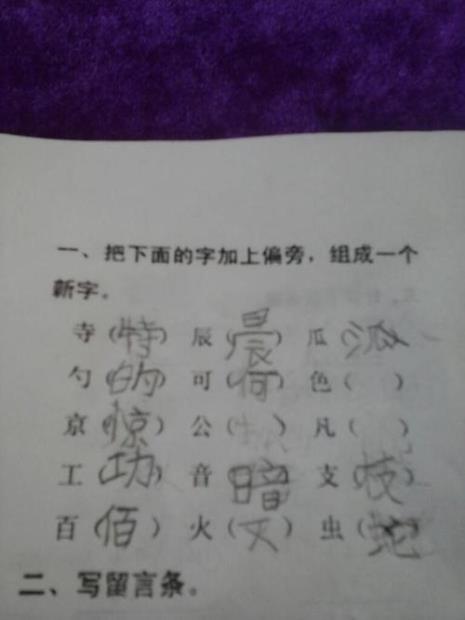 一、把下面的字加上偏旁，组成一个
新字。
寺（特） 辰（晨） 瓜（派）
勺（的） 可（何） 色（ ）
京（惊） 公（ ） 凡（ ）
工（功） 音（暗） 支（枝）
百（佰） 火（ ） 虫（蛇）
二、写留言条。